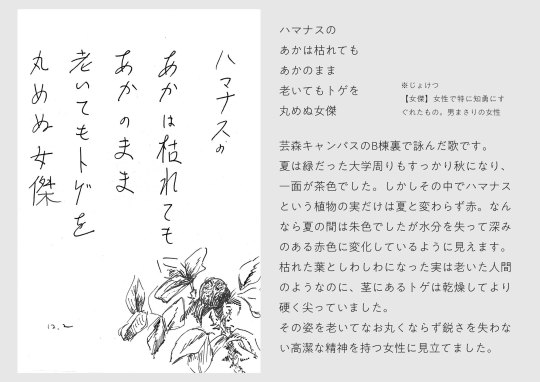 ハマナスの
あかは枯れても
あかのまま
老いてもトゲを
丸めぬ女傑
12.2
ハマナスの
あかは枯れても
あかのまま
老いてもトゲを
丸めぬ女傑
※じょけつ
【女傑】女性で特に知勇にす
ぐれたもの。男まさりの女性
芸森キャンパスのB棟裏で詠んだ歌です。
夏は緑だった大学周りもすっかり秋になり、
一面が茶色でした。しかしその中でハマナス
という植物の実だけは夏と変わらず赤。なん
なら夏の間は朱色でしたが水分を失って深み
のある赤色に変化しているように見えます。
枯れた葉としわしわになった実は老いた人間
のようなのに、茎にあるトゲは乾燥してより
硬く尖っていました。
その姿を老いてなお丸くならず鋭さを失わな
い高潔な精神を持つ女性に見立てました。